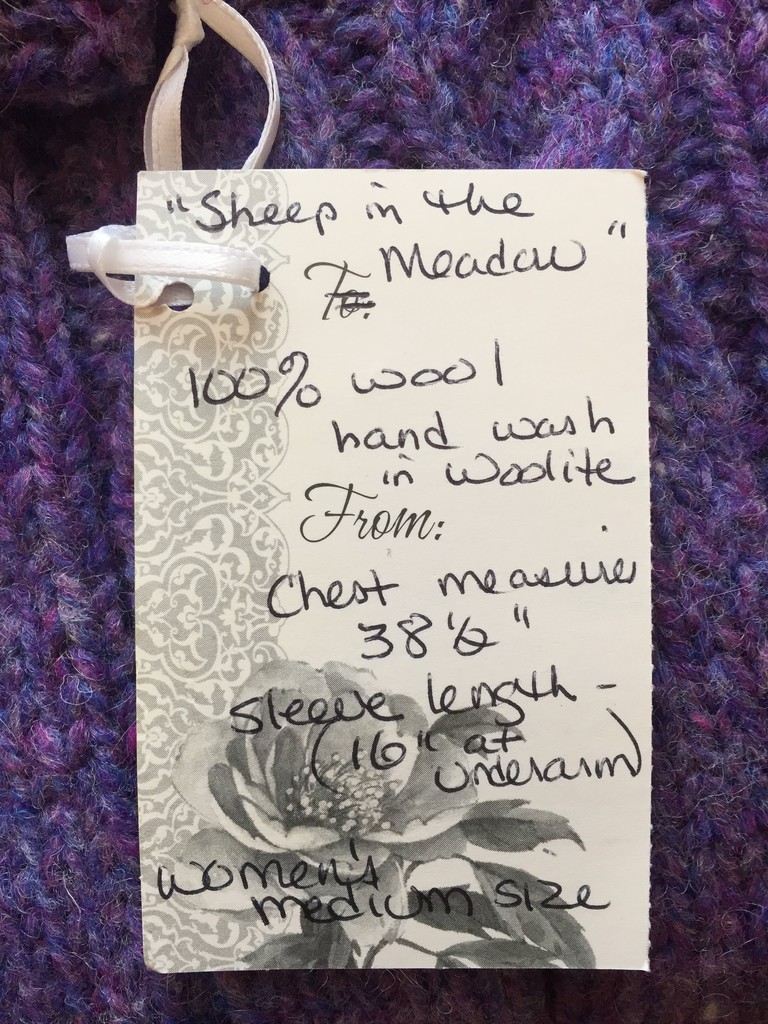 "Sheep in the
Meadow"
To:
100% wool
hand wash
in Woolite
From:
Chest measures
38 1/2"
sleeve length -
(16" at
underarm)
women's
medium size